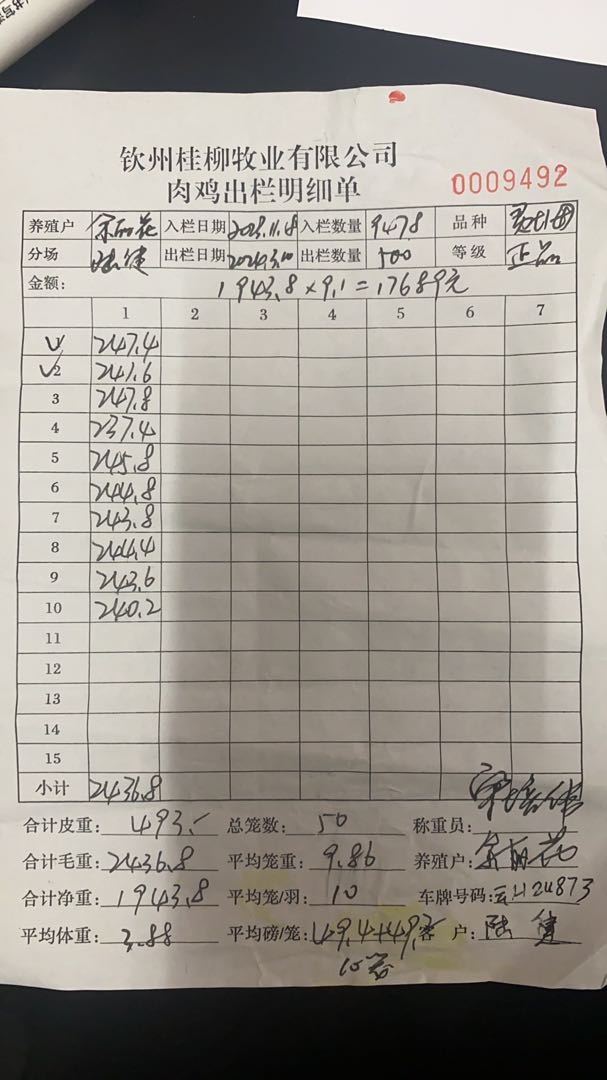 钦州桂柳牧业有限公司
肉鸡出栏明细单
0009492
养殖户 余丽花 入栏日期 2023.11.8 入栏数量 9478 品种
分场 陆健 出栏日期 2024.3.10 出栏数量 500 等级 正品
金额: 1943.8×9.1=17689元
1 2 3 4 5 6 7
1 247.4
2 241.6
3 247.8
4 237.4
5 245.8
6 244.8
7 243.8
8 244.4
9 243.6
10 240.2
11
12
13
14
15
小计 2436.8
合计皮重: 493.- 总笼数: 50 称重员:
合计毛重: 2436.8 平均笼重: 9.86 养殖户: 余丽花
合计净重: 1943.8 平均笼/羽: 10 车牌号码: 云H24873
平均体重: 3.88 平均磅/笼: 49.4+49.2 客户: 陆健